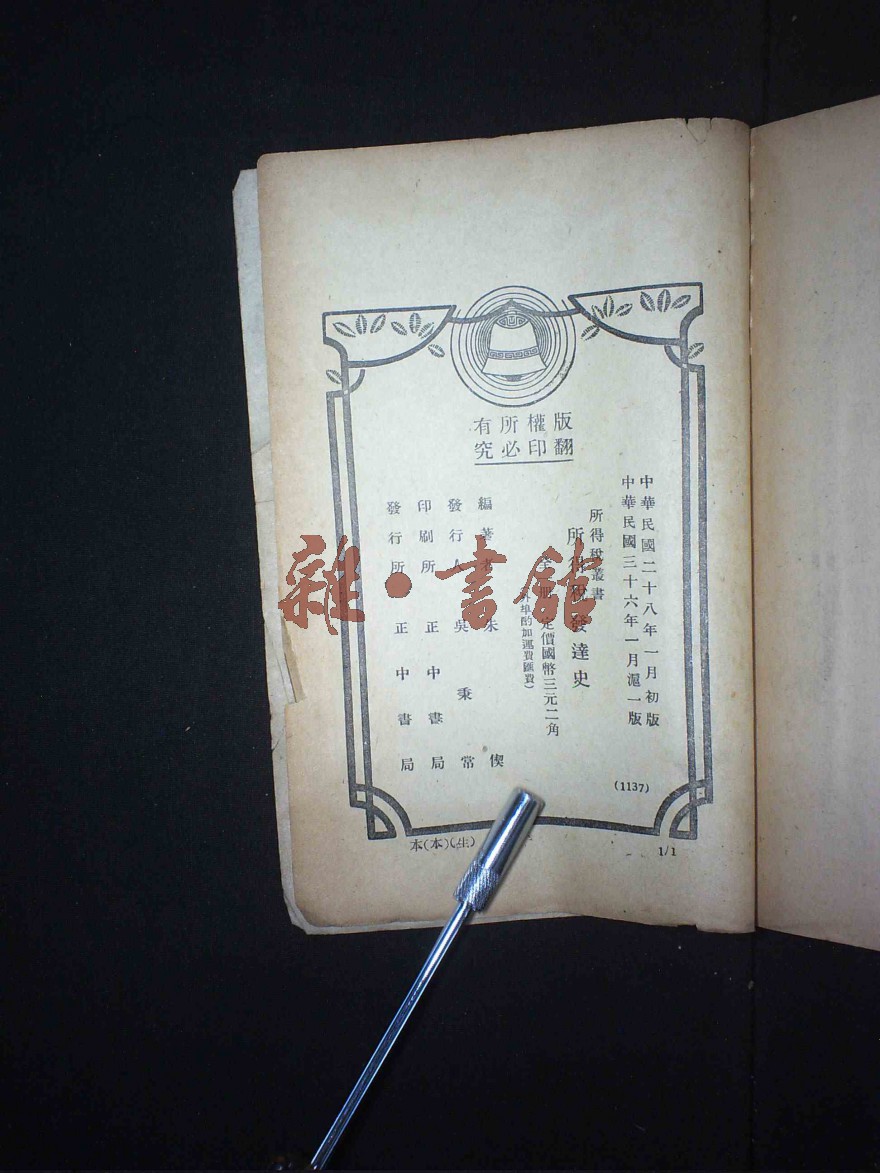 版權所有
翻印必究
中華民國二十八年一月初版
中華民國三十六年一月滬一版
(1137)
所得稅叢書
所得稅發達史
全 冊 定價國幣三元二角
外埠酌加運費匯費)
編著者 朱 偰
發行人 吳秉常
印刷所 正中書局
發行所 正中書局
本(本)(生)
1/1
雜·書館